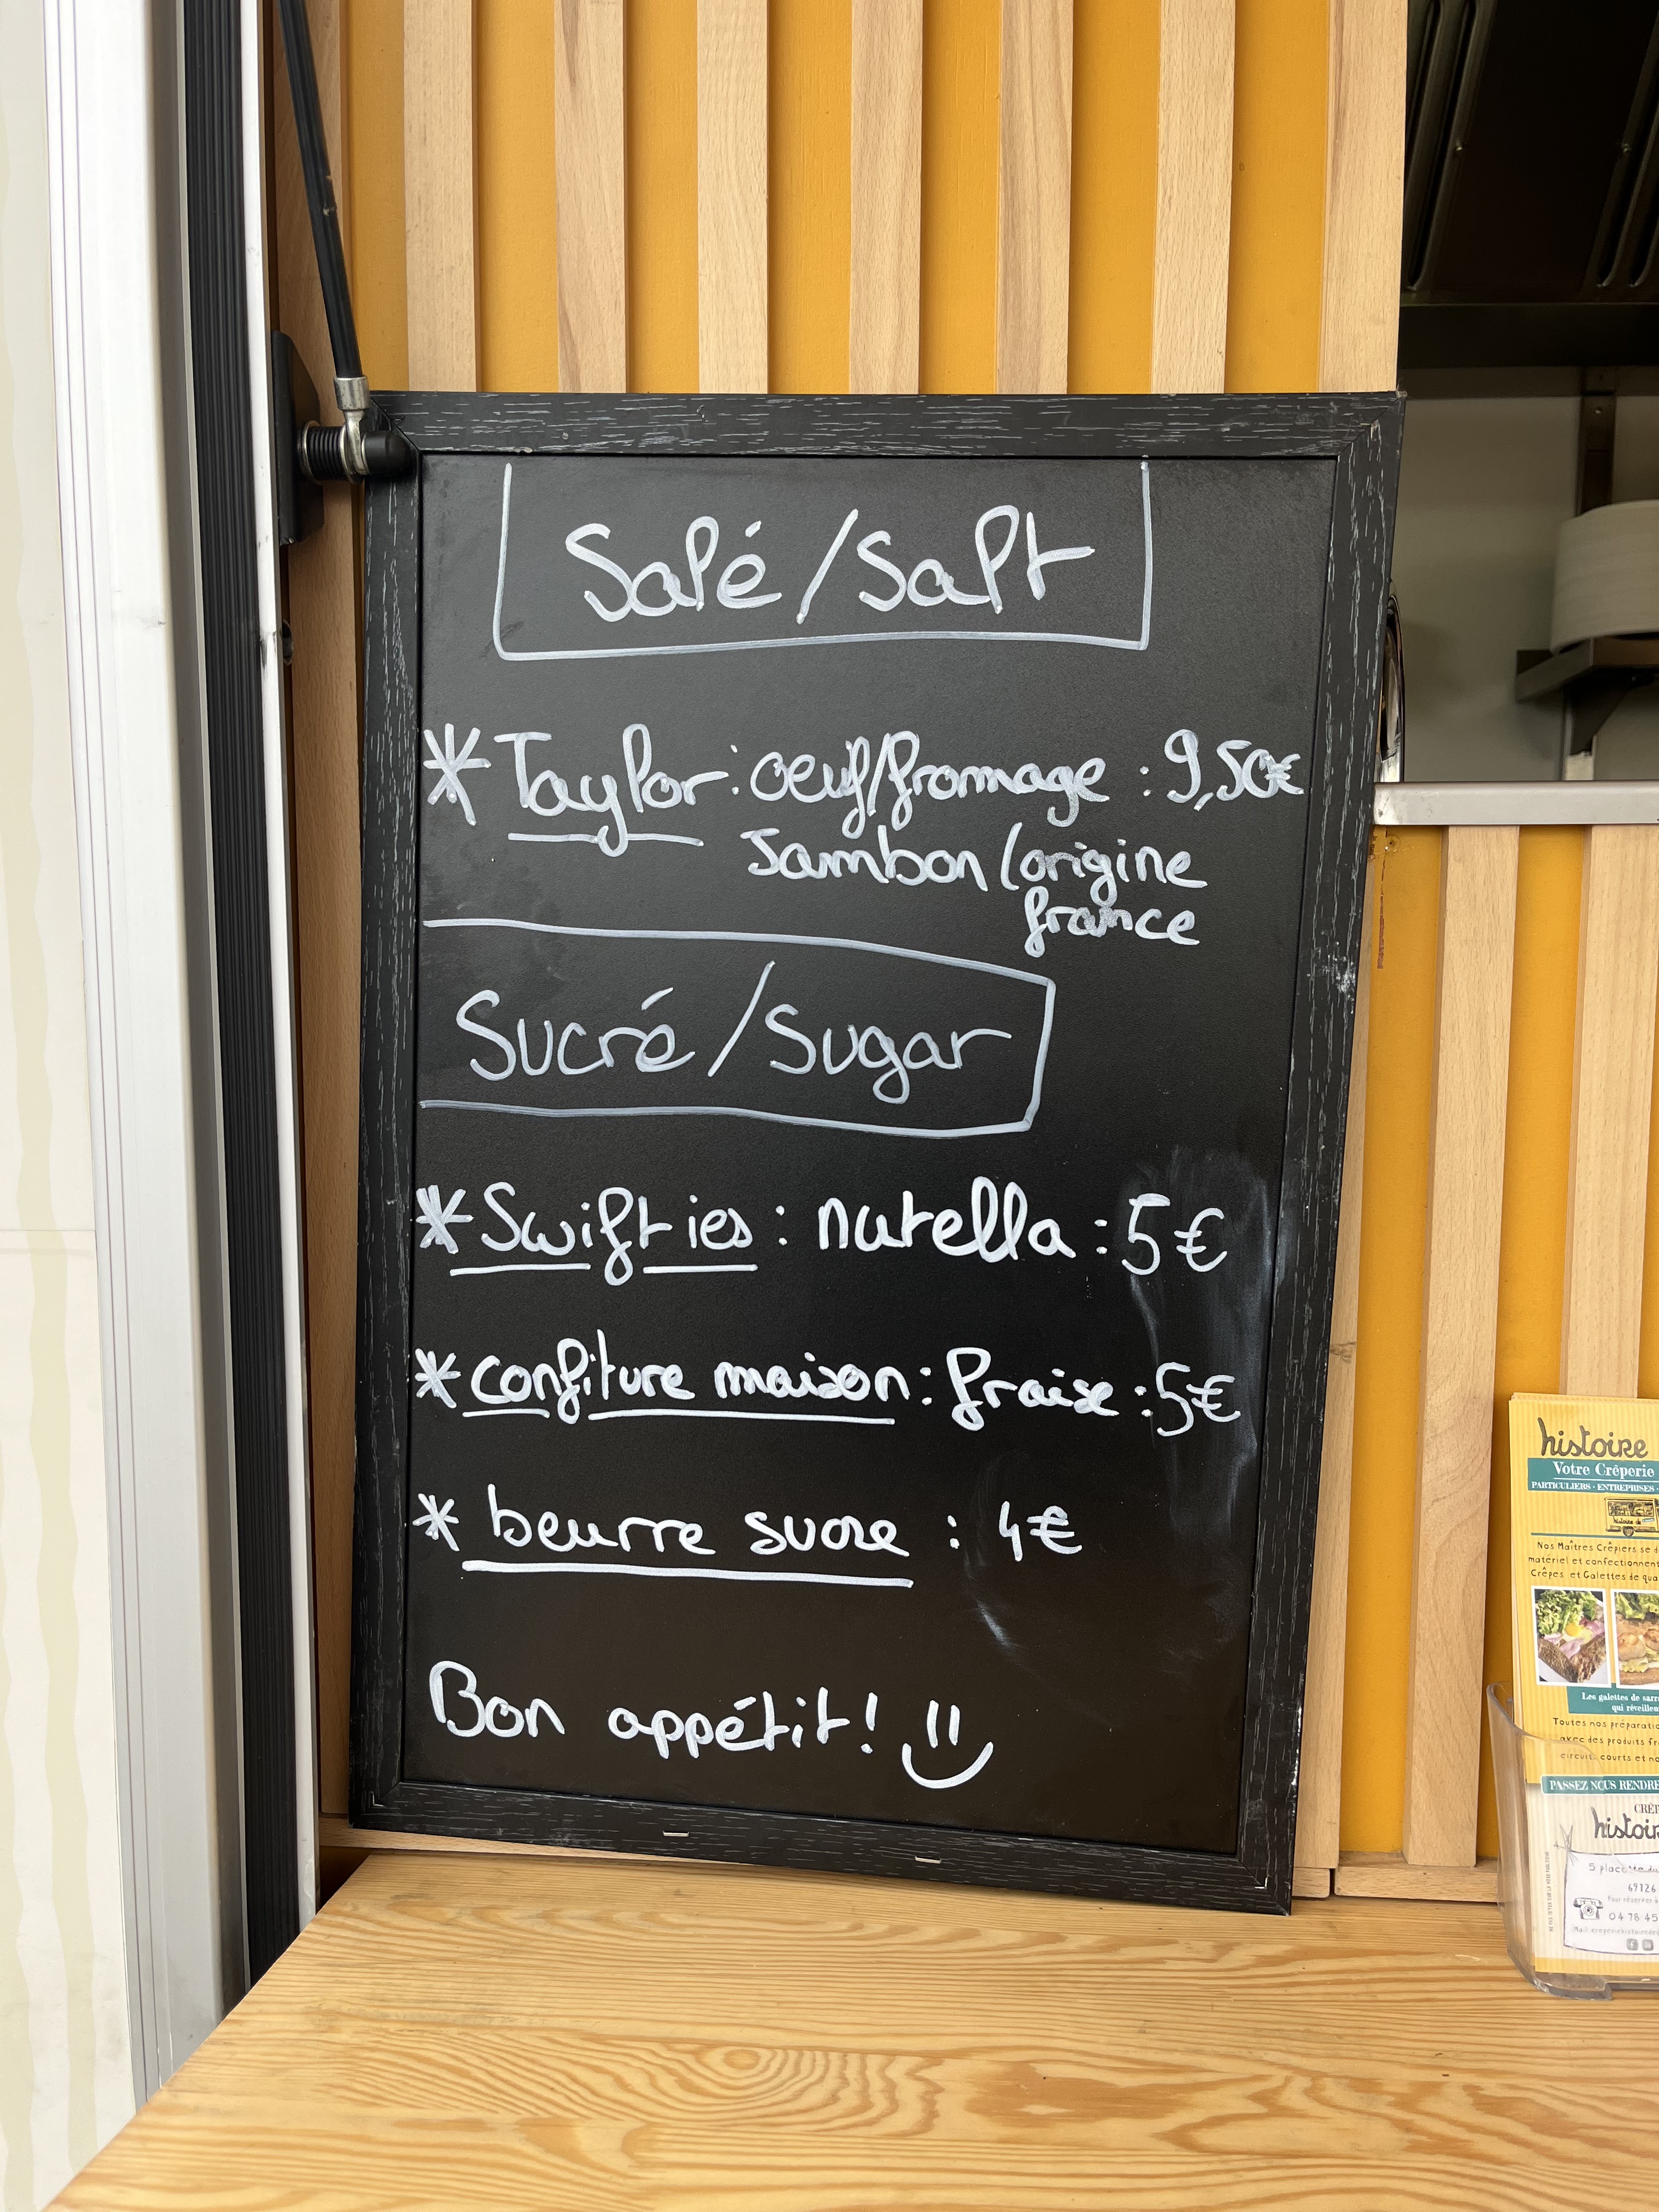 Salé/Salt
* Taylor : oeuf/fromage : 9,50€
Jambon (origine
france
Sucré/Sugar
* Swifties : nutella : 5€
* confiture maison : fraise : 5€
* beurre sucre : 4€
Bon appétit!
histoire
Votre Crêperie
PARTICULIERS · ENTREPRISES ·
Nos Maîtres Crêpiers se d
matériel et confectionnent
Crêpes et Galettes de qua
Les galettes de sarr
qui réveillen
Toutes nos préparatio
avec des produits fr
circuits courts et no
PASSEZ NOUS RENDRE
CRÊP
histoir
5 place
69126
04 78 45